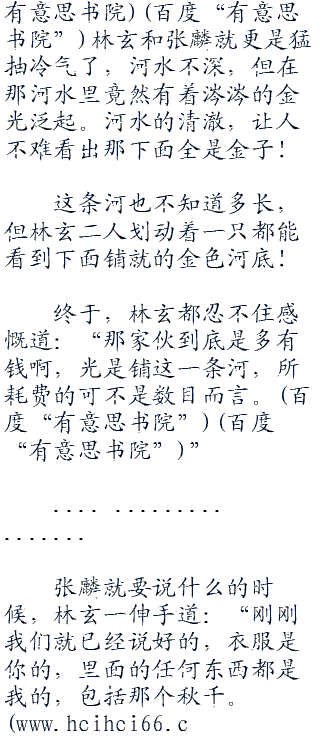 有意思书院)(百度“有意思
书院”)林玄和张麟就更是猛
抽冷气了，河水不深，但在
那河水里竟然有着涔涔的金
光泛起。河水的清澈，让人
不难看出那下面全是金子！
这条河也不知道多长，
但林玄二人划动着一只都能
看到下面铺就的金色河底！
终于，林玄都忍不住感
慨道：“那家伙到底是多有
钱啊，光是铺这一条河，所
耗费的可不是数目而言。(百
度“有意思书院”)(百度
“有意思书院”)”
.... .........
.......
张麟就要说什么的时
候，林玄一伸手道：“刚刚
我们就已经说好的，衣服是
你的，里面的任何东西都是
我的，包括那个秋千。
(www.hcihci66.c